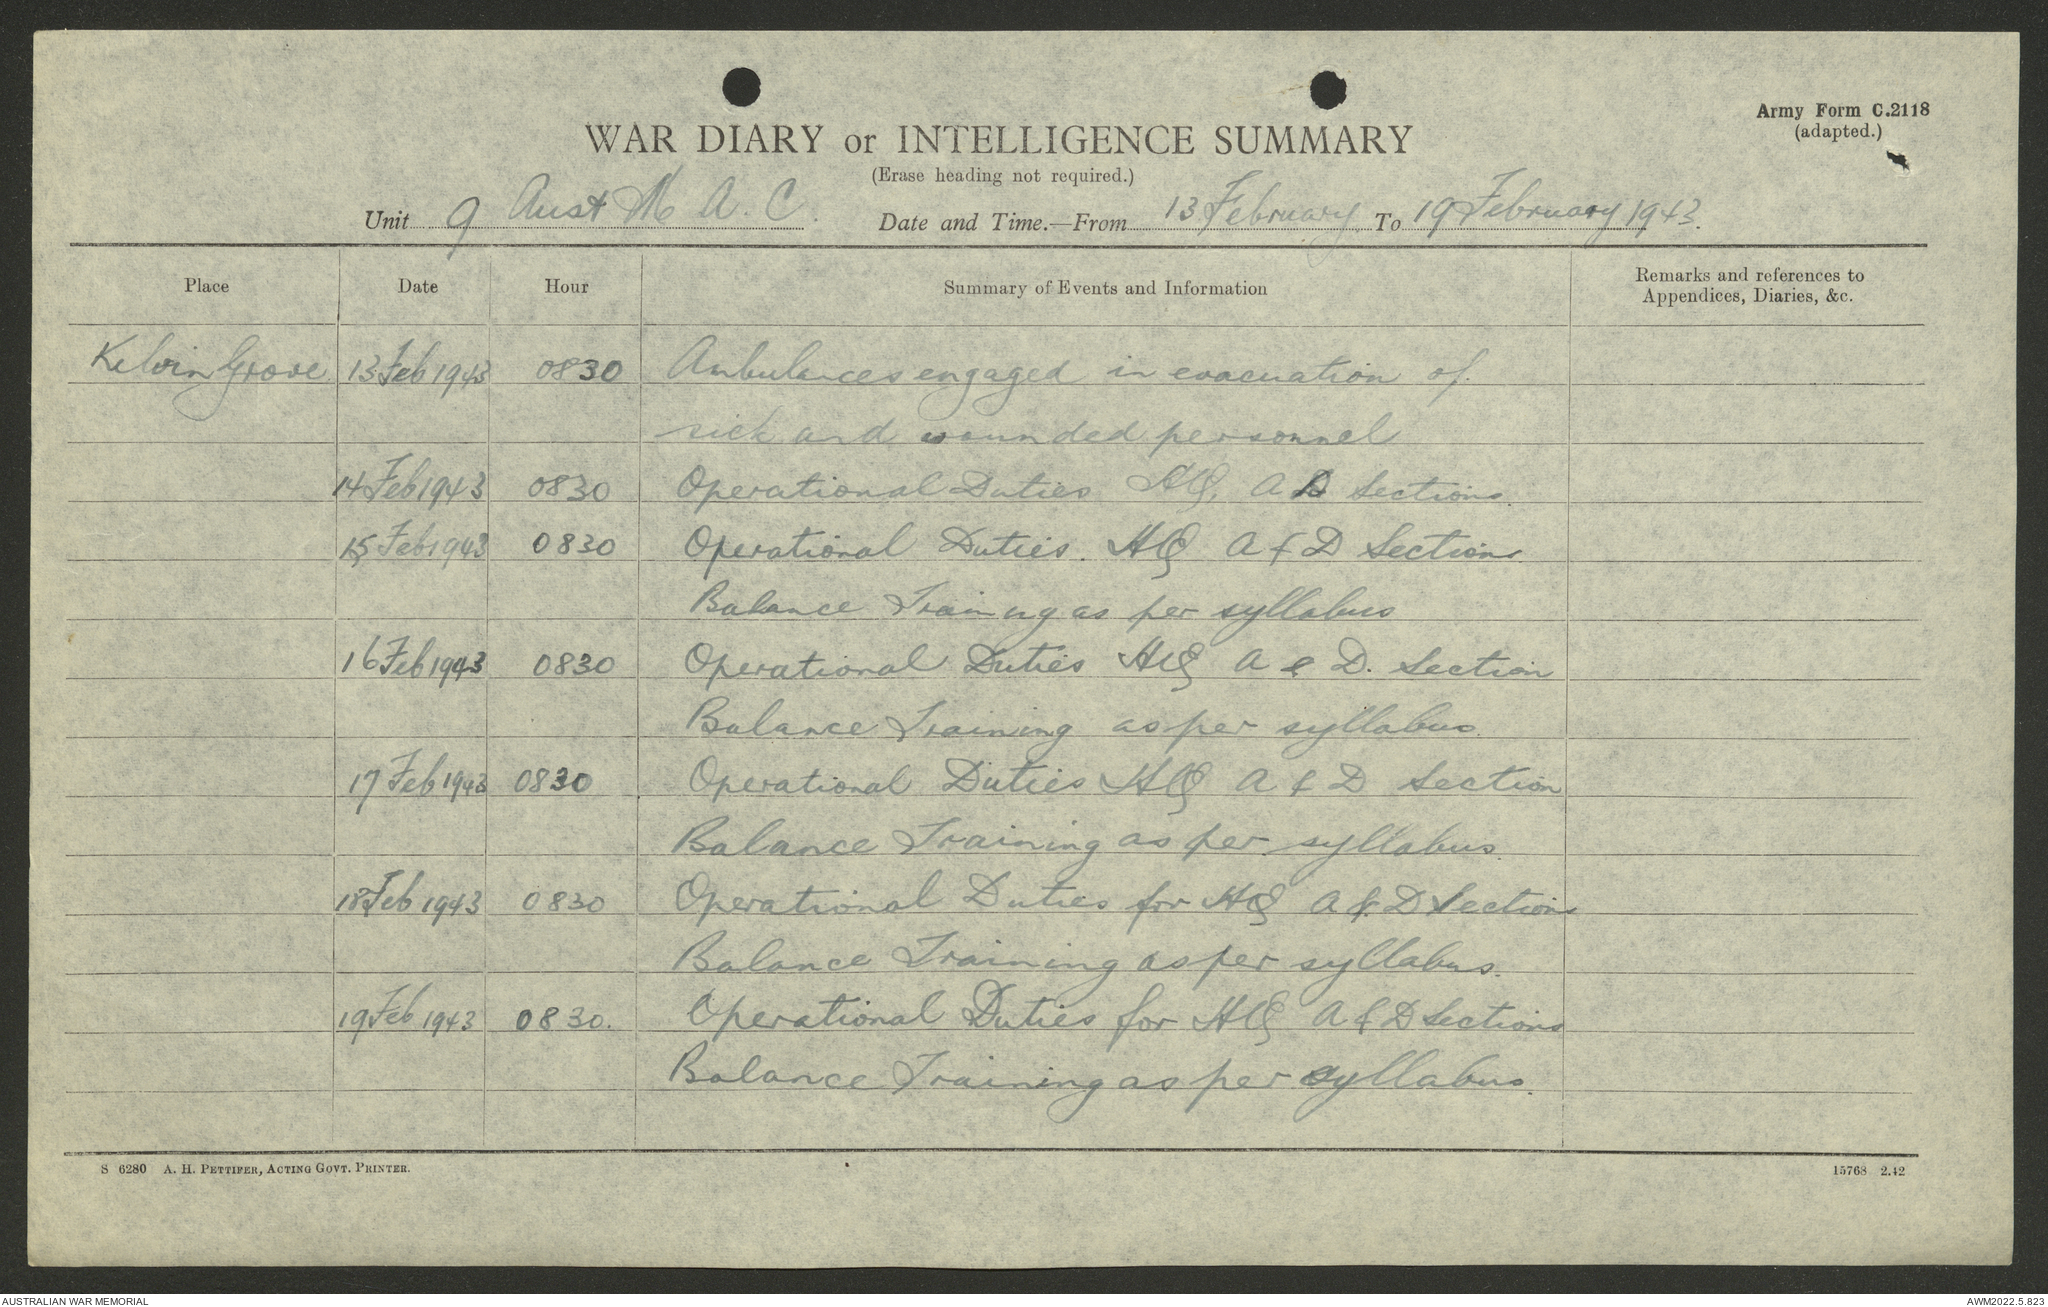 Army Form C.2118
(adapted.)
WAR DIARY or INTELLIGENCE SUMMARY
(Erase heading not required.)
Unit 9 Aust M. A. C. Date and Time.—From 13 February To 19 February 1943.
Place Date Hour Summary of Events and Information Remarks and references to
Appendices, Diaries, &c.
Kelvin Grove 13 Feb 1943 0830 Ambulances engaged in evacuation of
sick and wounded personnel
14 Feb 1943 0830 Operational Duties HQ, A D Sections
15 Feb 1943 0830 Operational Duties. HQ A & D Sections
Balance Training as per syllabus
16 Feb 1943 0830 Operational Duties HQ A & D. Section
Balance Training as per syllabus.
17 Feb 1943 0830 Operational Duties HQ A & D Section
Balance Training as per syllabus.
18 Feb 1943 0830 Operational Duties for HQ A & D Sections
Balance Training as per syllabus.
19 Feb 1943 0830. Operational Duties for HQ A & D Sections
Balance Training as per syllabus.
S 6280 A. H. PETTIFER, ACTING GOVT. PRINTER. 15768 2.42
AUSTRALIAN WAR MEMORIAL AWM2022.5.823